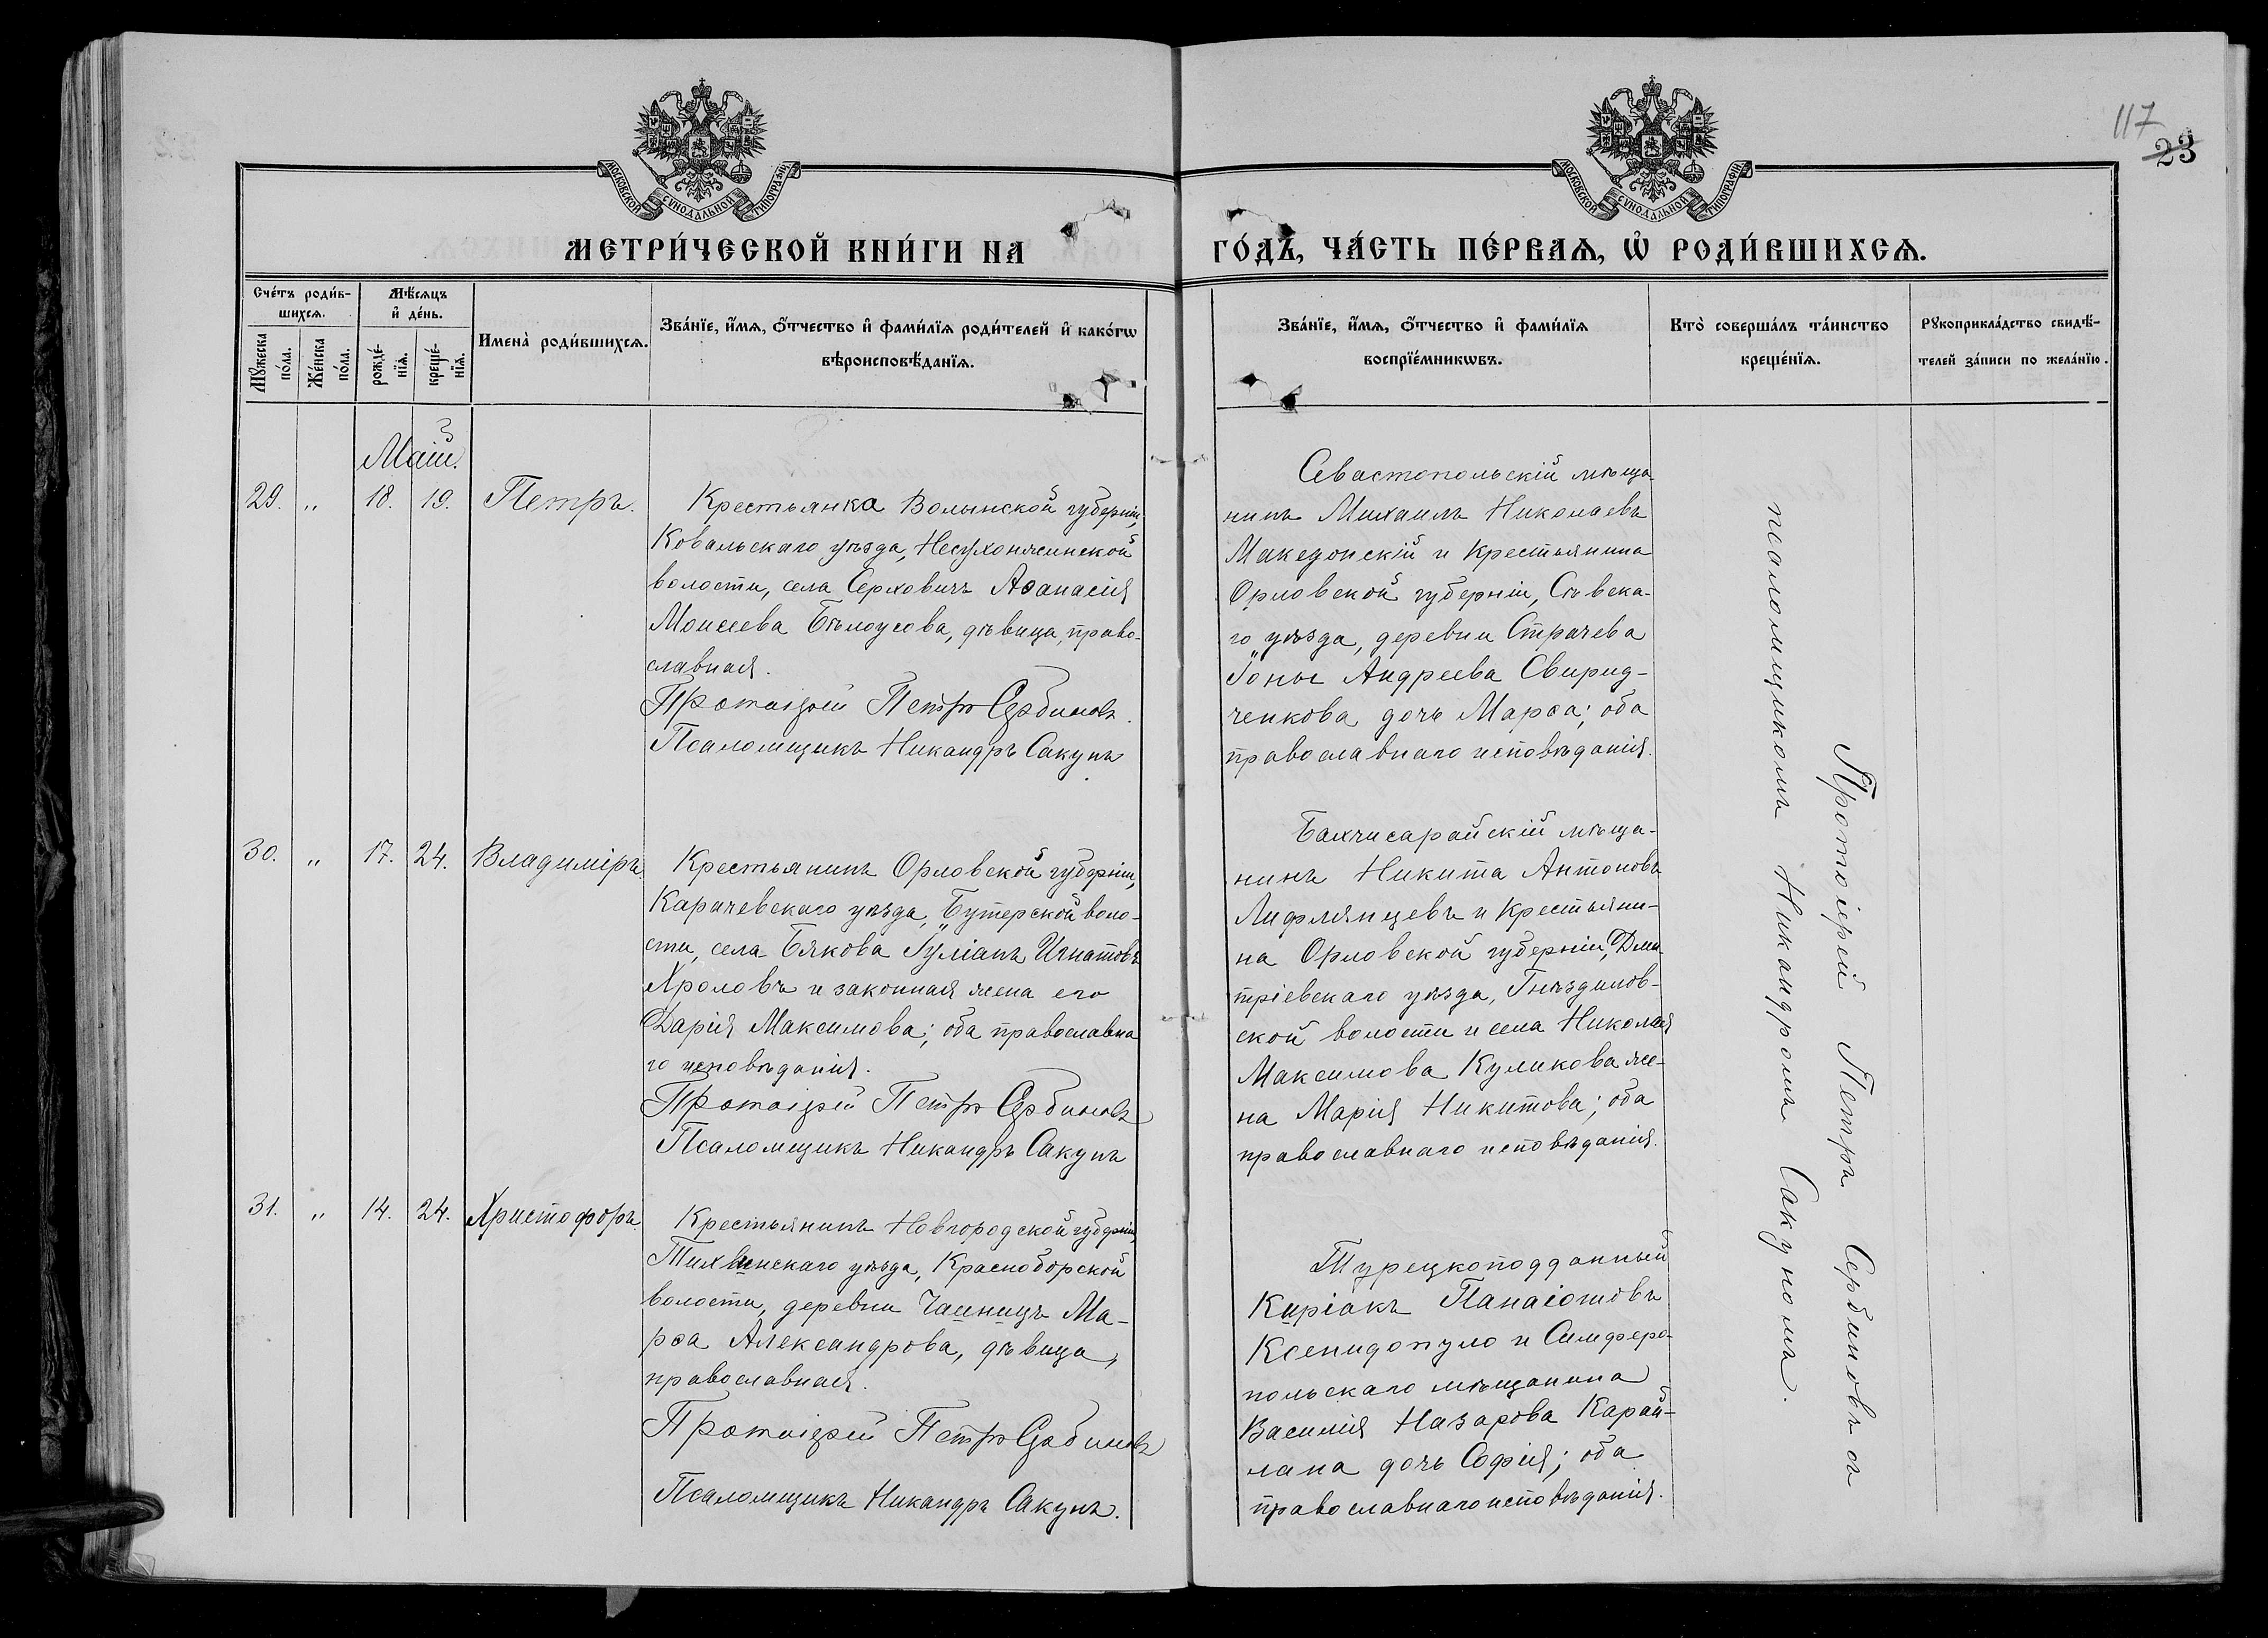 117
23
МОСКОВСКОЙ СУНОДАЛЬНОЙ ТИПОГРАФІИ
МОСКОВСКОЙ СУНОДАЛЬНОЙ ТИПОГРАФІИ
МЕТРИ́ЧЕСКОЙ КНИ́ГИ НА
ГО́ДЪ, ЧА́СТЬ ПЕ́РВАѦ, Ѡ҆ РОДИ́ВШИХСѦ.
Сче́тъ роди́в-
шихсѧ.
Мꙋ́жеска по́ла.
Же́нска по́ла.
Мѣ́сѧцъ
и҆ де́нь.
рожде́-
нїѧ.
креще́-
нїѧ.
Имена̀ роди́вшихсѧ.
Зва́нїе, и҆́мѧ, ѻ҆́тчество и҆ фами́лїѧ роди́телей и҆ како́гѡ
вѣроисповѣ́данїѧ.
Зва́нїе, и҆́мѧ, ѻ҆́тчество и҆ фами́лїѧ
воспрїе́мникѡвъ.
Кто̀ соверша́лъ та́инство
креще́нїѧ.
Рꙋкоприкла́дство свидѣ́-
телей за́писи по жела́нїю.
Май.
29. „ 18. 19. Петръ.
Крестьянка Волынской губерніи,
Ковальскаго уѣзда, Несухоижсинской
волости, села Серховичъ Аѳанасія
Моисеева Бѣлоусова, дѣвица, право-
славная.
Протоіерей Петръ Сербиновъ.
Псаломщикъ Никандръ Сакунъ
Севастопольскій мѣща
нинъ Михаилъ Николаевъ
Македонскій и Крестьянина
Орловской губерніи, Сѣвска-
го уѣзда, деревни Страчева
Іоны Андреева Свирид-
ченкова дочь Марѳа; оба
православнаго исповѣданія.
30. „ 17. 24. Владиміръ.
Крестьянинъ Орловской губерніи,
Карачевскаго уѣзда, Бутерской воло-
сти, села Бякова Іуліанъ Игнатовъ
Хроловъ и законная жена его
Дарія Максимова; оба православна
го исповѣданія.
Протоіерей Петръ Сербиновъ
Псаломщикъ Никандръ Сакунъ
Бахчисарайскій мѣща-
нинъ Никита Антоновъ
Лифлянцевъ и Крестьяни-
на Орловской губерніи, Дми-
тріевскаго уѣзда, Гнѣздилов-
ской волости и села Николая
Максимова Куликова же-
на Марія Никитова; оба
православнаго исповѣданія.
31. „ 14. 24. Христофоръ.
Крестьянинъ Новгородской губерніи,
Тихвинскаго уѣзда, Красноборской
волости, деревни Чаиницъ Ма-
рѳа Александрова, дѣвица,
православная.
Протоіерей Петръ Сербиновъ
Псаломщикъ Никандръ Сакунъ.
Турецкоподданный
Киріакъ Панаіотовъ
Ксенидопуло и Симферо-
польскаго мѣщанина
Василія Назарова Карай-
лана дочь Софія; оба
православнаго исповѣданія.
Протоіерей Петръ Сербиновъ съ
псаломщикомъ Никандромъ Сакуномъ.